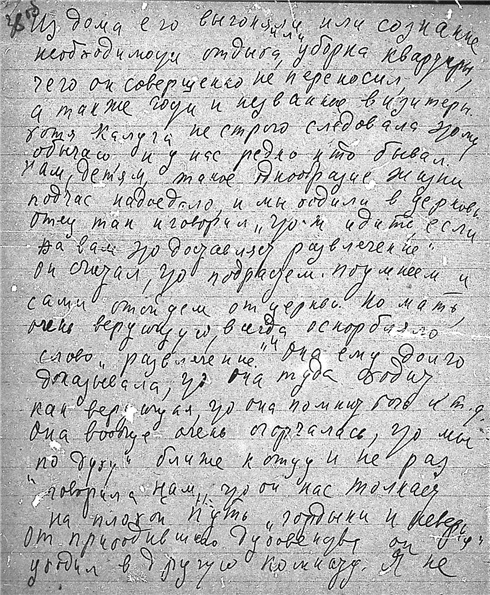 Из дома его выгоняли или сознание
необходимости отдыха, или уборка квартиры,
чего он совершенно не переносил,
а также гости и незваные визитеры.
хотя Калуга не строго следовала этому
обычаю и у нас редко кто бывал.
Нам, детям такое однообразие жизни
подчас надоедало и мы ходили в церковь.
Отец так и говорил „что-ж идите, если
вам это доставляет развлечение“.
Он считал, что подрастем, поумнеем и
сами отойдем от церкви. Но мать,
очень верующую, всегда оскорбляло
слово „развлечение“. Она ему долго
доказывала, что она туда ходит
как верующая, что она помнит бога и т.д.
Она вообще очень огорчалась, что мы
„по духу“ ближе к отцу и не раз
говорила нам, что он нас толкает
на плохой путь „гордыни и неверия“
От приходившего духовенства он
уходил в другую комнату. Я не